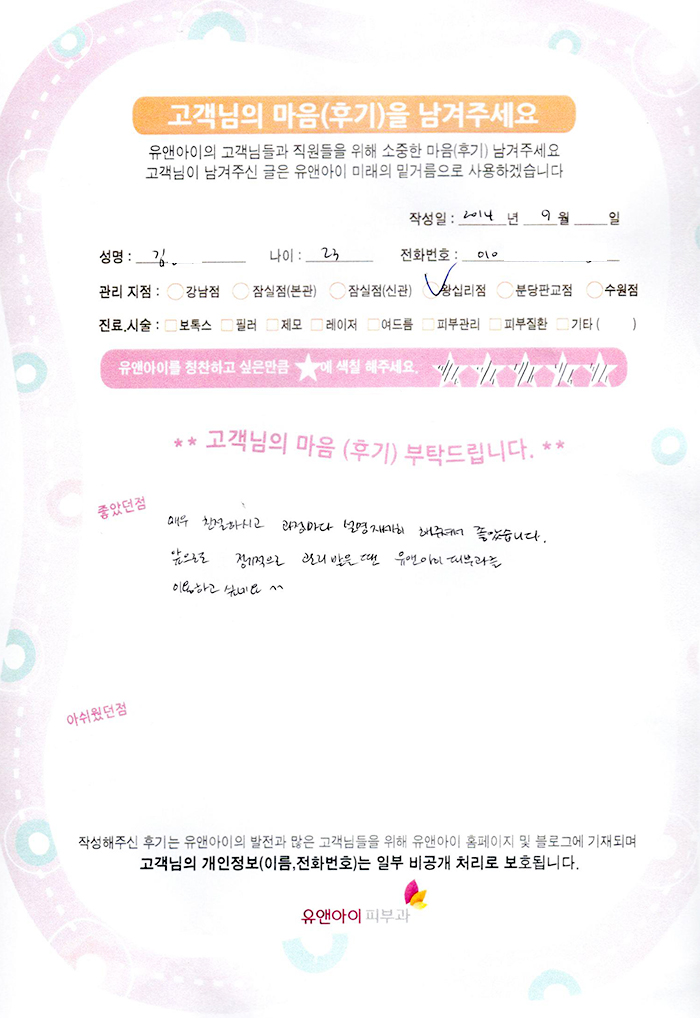 고객님의 마음(후기)을 남겨주세요
유앤아이의 고객님들과 직원들을 위해 소중한 마음(후기) 남겨주세요
고객님이 남겨주신 글은 유앤아이 미래의 밑거름으로 사용하겠습니다
작성일 : 2014 년 9 월 일
성명 : 김 나이 : 23 전화번호 : 010
관리 지점 : 강남점 잠실점(본관) 잠실점(신관) 왕십리점 분당판교점 수원점
진료.시술 : 보톡스 필러 제모 레이저 여드름 피부관리 피부질환 기타 ( )
유앤아이를 칭찬하고 싶은만큼 ★에 색칠 해주세요.
** 고객님의 마음 (후기) 부탁드립니다. **
좋았던점
매우 친절하시고 과정마다 설명 자세히 해주셔서 좋았습니다.
앞으로도 정기적으로 관리 받을 땐 유앤아이 피부과를
이용하고 싶네요 ^^
아쉬웠던점
작성해주신 후기는 유앤아이의 발전과 많은 고객님들을 위해 유앤아이 홈페이지 및 블로그에 기재되며
고객님의 개인정보(이름,전화번호)는 일부 비공개 처리로 보호됩니다.
유앤아이 피부과